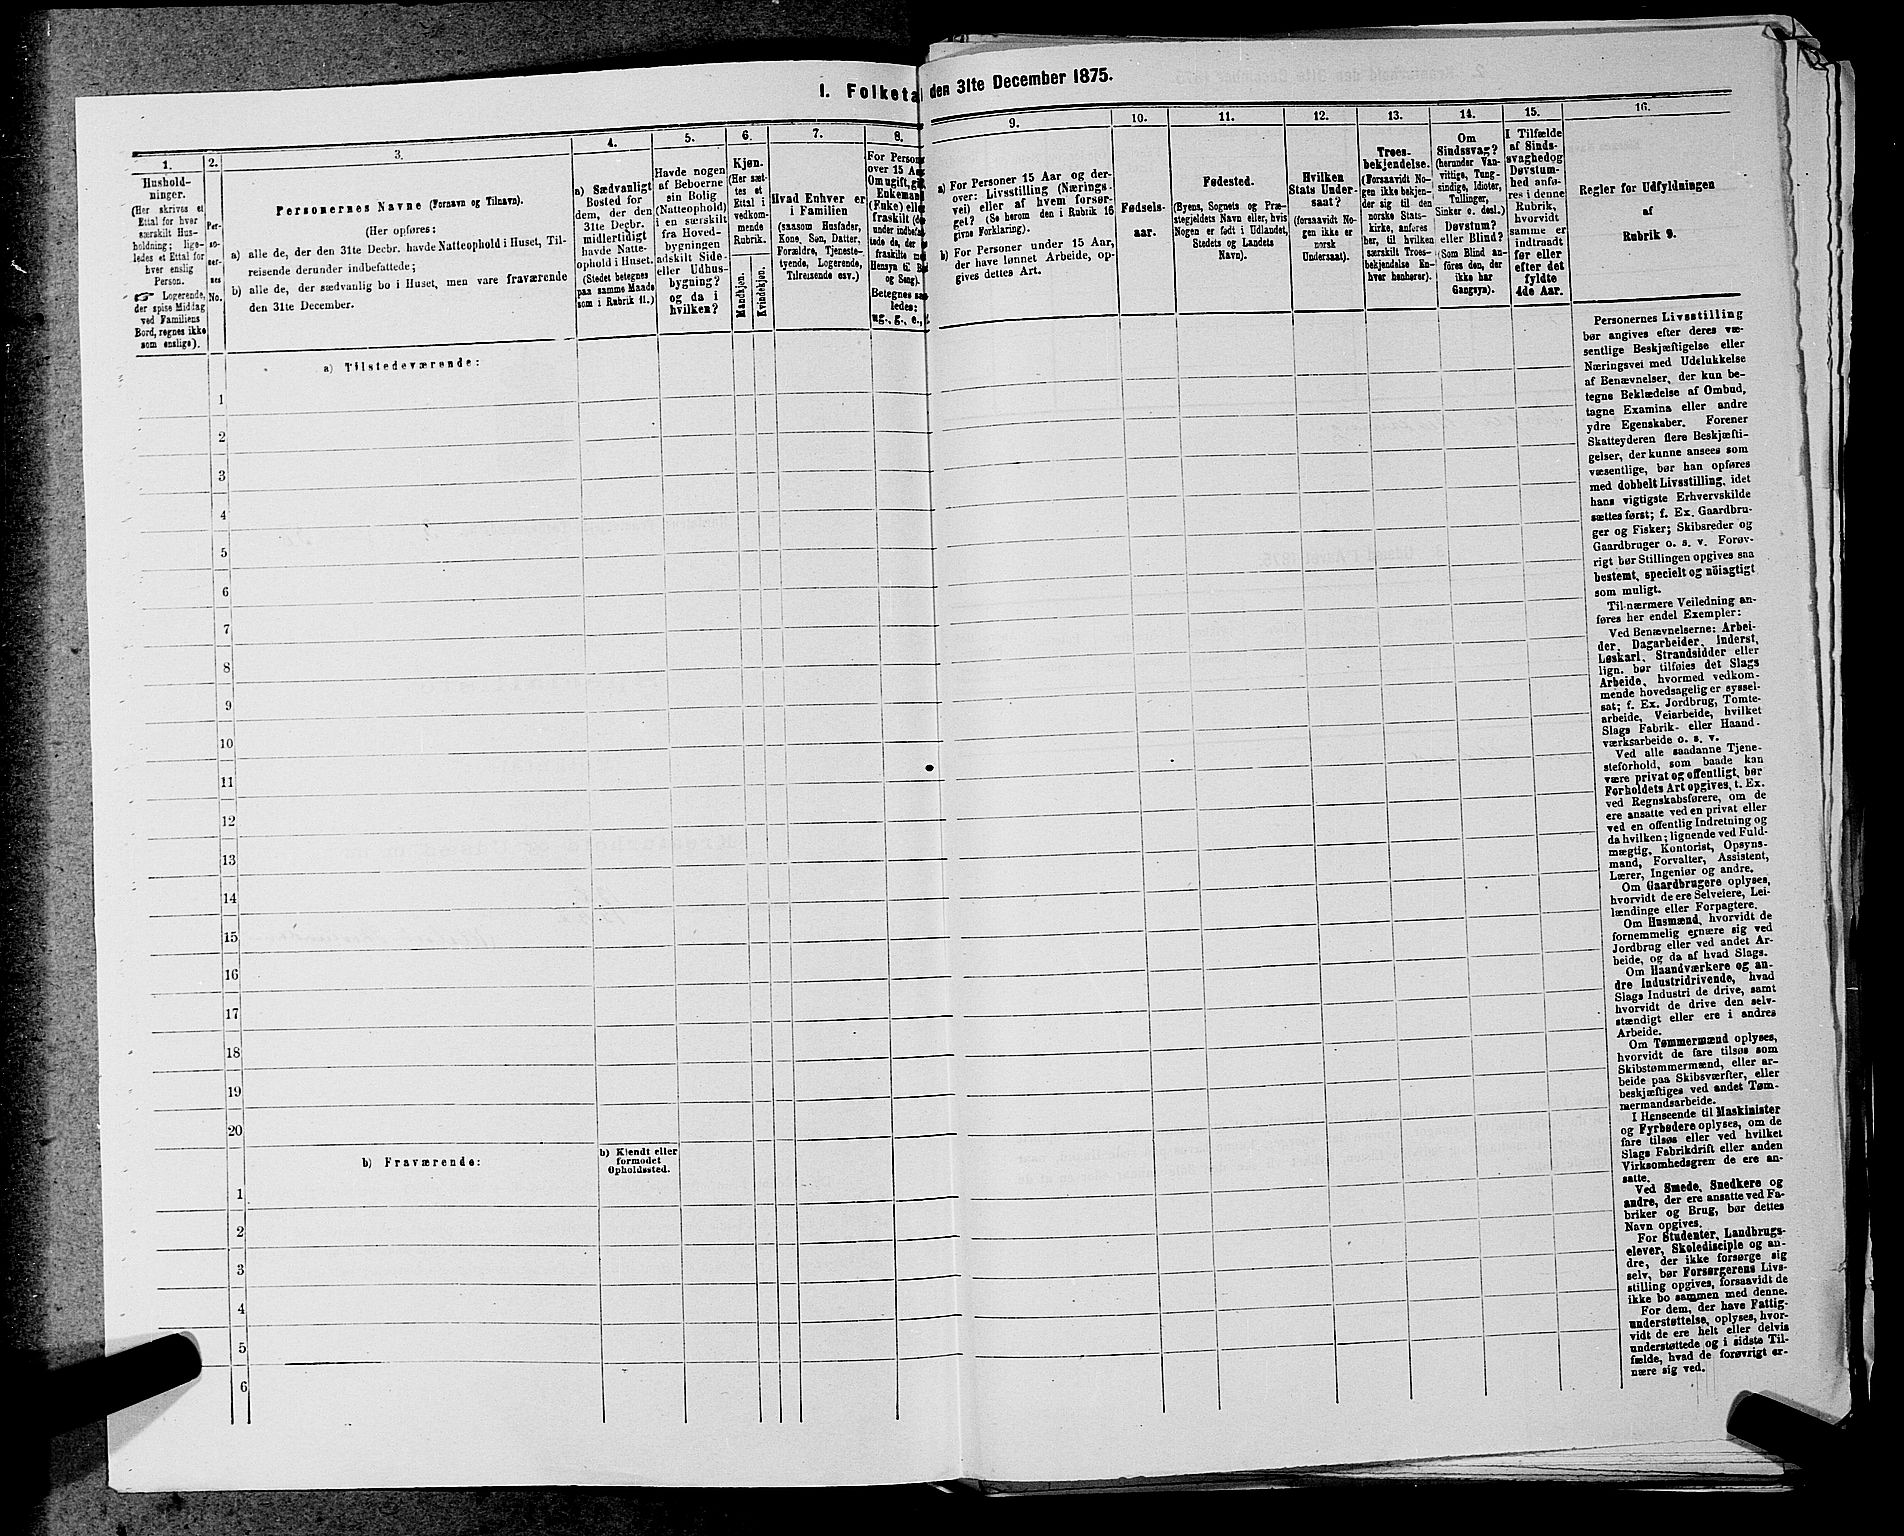 I. Folketal den 31te December 1875.
1.
Hushold-
ninger.
(Her skrives et
Ettal for hver
særskilt Hus-
holdning; lige-
ledes et Ettal for
hver enslig
Person.
☞ Logerende,
der spise Middag
ved Familiens
Bord, regnes ikke
som enslige).
2.
Per-
so-
ner-
nes
No.
3.
Personernes Navne (Fornavn og Tilnavn).
(Her opføres:
a) alle de, der den 31te Decbr. havde Natteophold i Huset, Til-
reisende derunder indbefattede;
b) alle de, der sædvanlig bo i Huset, men vare fraværende
den 31te December.
4.
a) Sædvanligt
Bosted for
dem, der den
31te Decbr.
midlertidigt
havde Natte-
ophold i Huset.
(Stedet betegnes
paa samme Maade
som i Rubrik 11.)
5.
Havde nogen
af Beboerne
sin Bolig
(Natteophold)
i en særskilt
fra Hoved-
bygningen
adskilt Side-
eller Udhus-
bygning?
og da i
hvilken?
6.
Kjøn.
(Her sæt-
tes et
Ettal i
vedkom-
mende
Rubrik.
Mandkjøn.
Kvindekjøn.
7.
Hvad Enhver er
i Familien
(saasom Husfader,
Kone, Søn, Datter,
Forældre, Tjeneste-
tyende, Logerende,
Tilreisende osv.)
8.
For Person
over 15 Aa
Om ugift, gi
Enkemand
(Enke) elle
fraskilt (de
under indbefat
tede da, der
fraskilte me
Hensyn til Bo
og Seng).
Betegnes saa
ledes:
ug., g., e.,
9.
a) For Personer 15 Aar og der-
over: Livsstilling (Nærings-
vei) eller af hvem forsør-
get? (Se herom den i Rubrik 16
givne Forklaring).
b) For Personer under 15 Aar,
der have lønnet Arbeide, op-
gives dettes Art.
10.
Fødsels-
aar.
11.
Fødested.
(Byens, Sognets og Præ-
stegjeldets Navn eller, hvis
Nogen er født i Udlandet,
Stedets og Landets
Navn).
12.
Hvilken
Stats Under-
saat?
(forsaavidt No-
gen ikke er
norsk
Undersaat).
13.
Troes-
bekjendelse.
(Forsaavidt No-
gen ikke bekjen-
der sig til den
norske Stats-
kirke, anføres
her, til hvilken
særskilt Troes-
bekjendelse En-
hver henhører).
14.
Om
Sindssvag?
(herunder Van-
vittige, Tung-
sindige, Idioter,
Tullinger,
Sinker o. desl.)
Døvstum?
eller Blind?
(Som Blind an-
føres den, der
ikke har
Gangsyn).
15.
I Tilfælde
af Sinds-
svaghed og
Døvstum-
hed anfø-
res i denne
Rubrik,
hvorvidt
samme er
indtraadt
før eller
efter det
fyldte
4de Aar.
16.
Regler for Udfyldningen
af
Rubrik 9.
a) Tilstedeværende:
1
2
3
4
5
6
7
8
9
10
11
12
13
14
15
16
17
18
19
20
b) Fraværende:
b) Kjendt eller
formodet
Opholdssted.
1
2
3
4
5
6
Personernes Livsstilling
bør angives efter deres væ-
sentlige Beskjæftigelse eller
Næringsvei med Udelukkelse
af Benævnelser, der kun be-
tegne Beklædelse af Ombud,
tagne Examina eller andre
ydre Egenskaber. Forener
Skatteyderen flere Beskjæfti-
gelser, der kunne ansees som
væsentlige, bør han opføres
med dobbelt Livsstilling, idet
hans vigtigste Erhvervskilde
sættes først; f. Ex. Gaardbru-
ger og Fisker; Skibsreder og
Gaardbruger o. s. v. Forøv-
rigt bør Stillingen opgives saa
bestemt, specielt og nöiagtigt
som muligt.
Til nærmere Veiledning an-
føres her endel Exempler:
Ved Benævnelserne: Arbei-
der, Dagarbeider, Inderst,
Løskarl, Strandsidder eller
lign. bør tilføies det Slags
Arbeide, hvormed vedkom-
mende hovedsagelig er syssel-
sat; f. Ex. Jordbrug, Tomte-
arbeide, Veiarbeide, hvilket
Slags Fabrik- eller Haand-
værksarbeide o. s. v.
Ved alle saadanne Tjene-
steforhold, som baade kan
være privat og offentligt, bør
Forholdets Art opgives, t. Ex.
ved Regnskabsførere, om de
ere ansatte ved en privat eller
ved en offentlig Indretning og
da hvilken; lignende ved Fuld-
mægtig, Kontorist, Opsyns-
mand, Forvalter, Assistent,
Lærer, Ingeniør og andre.
Om Gaardbrugere oplyses,
hvorvidt de ere Selveiere, Lei-
lændinge eller Forpagtere.
Om Husmænd, hvorvidt de
fornemmelig ernære sig ved
Jordbrug eller ved andet Ar-
beide, og da af hvad Slags.
Om Haandværkere og an-
dre Industridrivende, hvad
Slags Industri de drive, samt
hvorvidt de drive den selv-
stændigt eller ere i andres
Arbeide.
Om Tømmermænd oplyses,
hvorvidt de fare tilsøs som
Skibstømmermænd, eller ar-
beide paa Skibsværfter, eller
beskjæftiges ved andet Tøm-
mermandsarbeide.
I Henseende til Maskinister
og Fyrbødere oplyses, om de
fare tilsøs eller ved hvilket
Slags Fabrikdrift eller anden
Virksomhedsgren de ere an-
satte.
Ved Smede, Snedkere og
andre, der ere ansatte ved Fa-
briker og Brug, bør dettes
Navn opgives.
For Studenter, Landbrugs-
elever, Skoledisciple og an-
dre, der ikke forsørge sig
selv, bør Forsørgerens Livs-
stilling opgives, forsaavidt de
ikke bo sammen med denne.
For dem, der have Fattig-
understøttelse, oplyses, hvor-
vidt de ere helt eller delvis
understøttede og i sidste Til-
fælde, hvad de forøvrigt er-
nære sig ved.